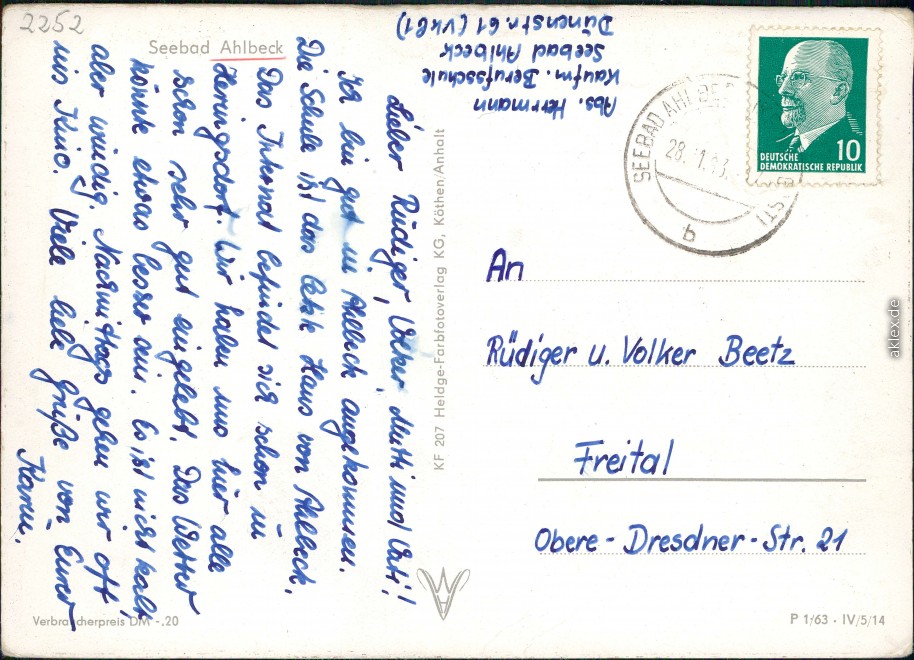 2252
Seebad Ahlbeck
Abs. Herrmann
Kaufm. Berufsschule
Seebad Ahlbeck
Dünenstr. 61 (Vk61)
Lieber Rüdiger, Volker, Mutti und Vati!
Ich bin gut in Ahlbeck angekommen.
Die Schule ist das letzte Haus von Ahlbeck.
Das Internat befindet sich schon in
Heringsdorf. Wir haben uns hier alle
schon sehr gut eingelebt. Das Wetter
könnte etwas besser sein. Es ist nicht kalt,
aber windig. Nachmittags gehen wir oft
ins Kino. Viele liebe Grüße von Eurer
Karin.
KF 207 Heldge-Farbfotoverlag KG, Köthen/Anhalt
SEEBAD AHLBECK
28. 1.63.
b
DEUTSCHE
DEMOKRATISCHE REPUBLIK
10
An
Rüdiger u. Volker Beetz
Freital
Obere-Dresdner-Str. 21
Verbraucherpreis DM -.20
P 1/63 · IV/5/14
aklex.de